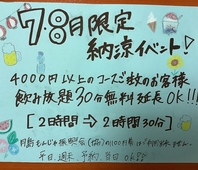 7.8月限定
納涼イベント!
4000円以上のコースご注文のお客様
飲み放題30分無料延長OK!!!
[2時間→2時間30分]
平日、週末 予約、当日 OK